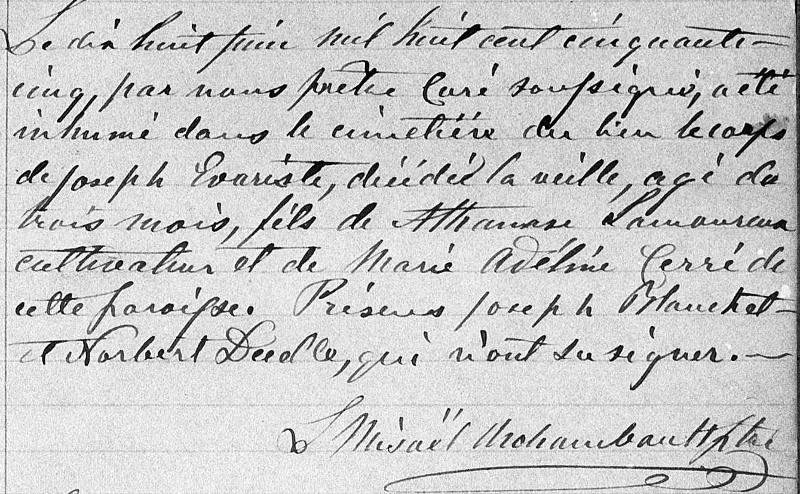 Le dix huit juin mil huit cent cinquante-
cinq, par nous prêtre Curé soussigné, a été
inhumé dans le cimetière du lieu le corps
de Joseph Evariste, décédé la veille, agé de
trois mois, fils de Athanase Lamoureux
cultivateur et de Marie Adéline Cerré de
cette paroisse. Présens Joseph Blanchet-
et Norbert, qui n'ont su signer.—
L Misaël Archambault Ptre